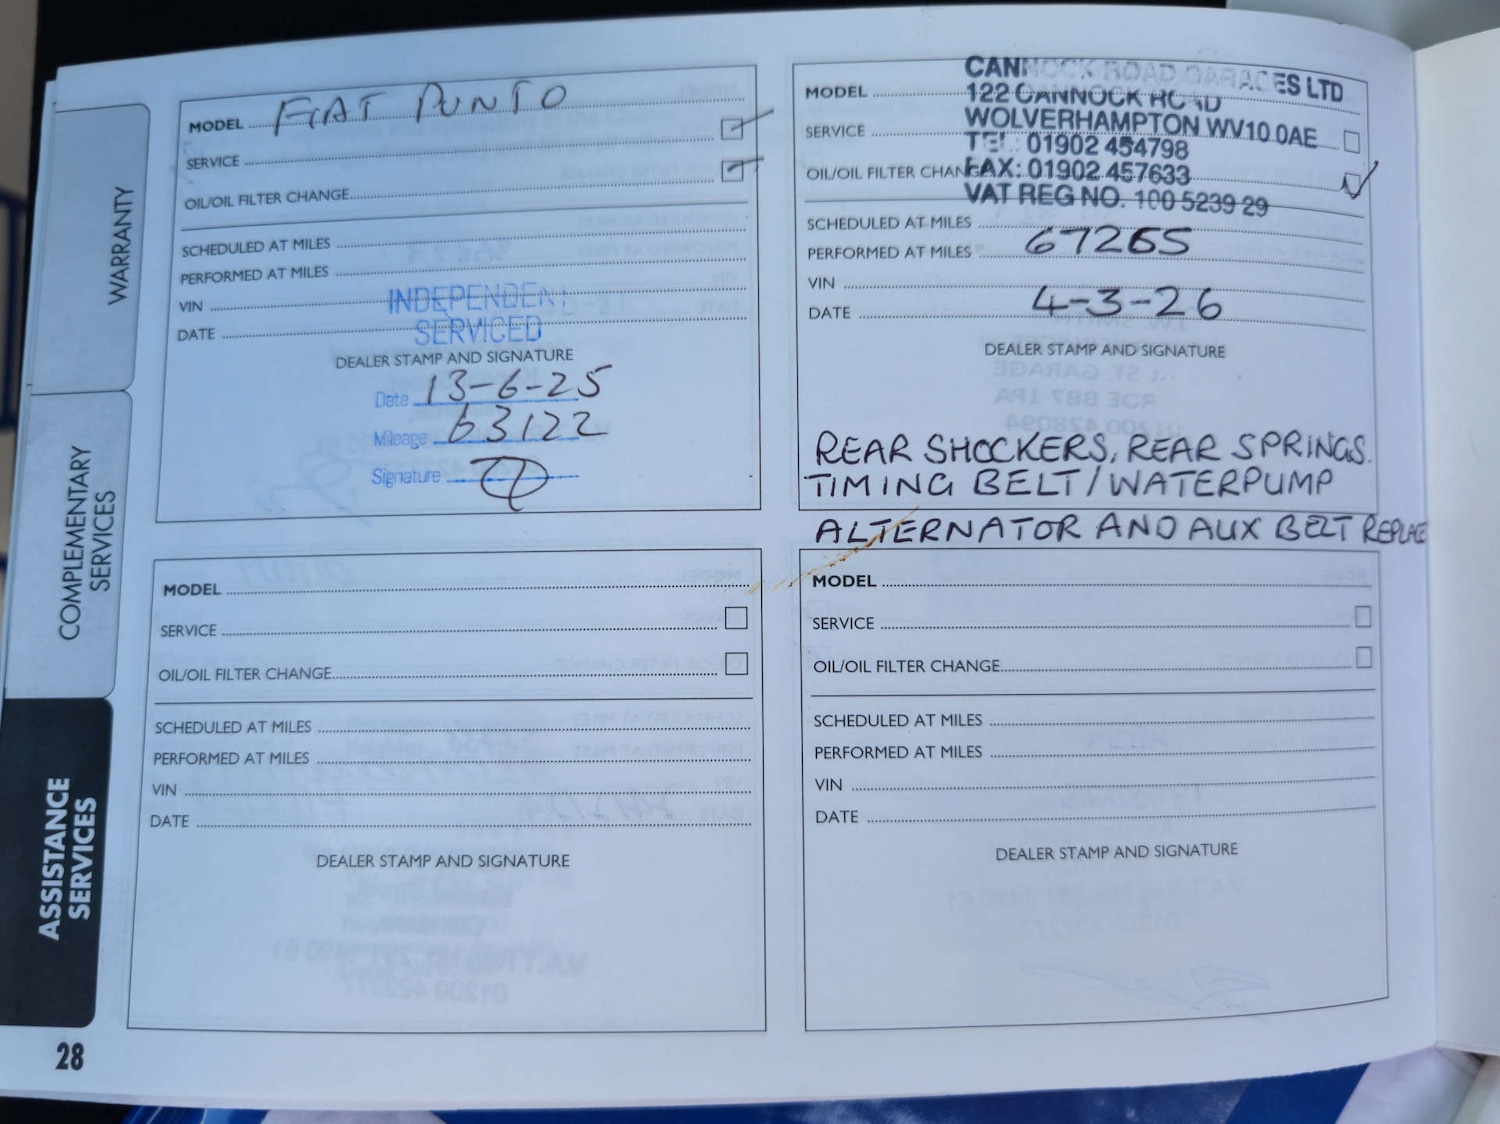 WARRANTY
COMPLEMENTARY
SERVICES
ASSISTANCE
SERVICES
28
MODEL FIAT PUNTO
SERVICE
OIL/OIL FILTER CHANGE
SCHEDULED AT MILES
PERFORMED AT MILES
VIN
DATE
INDEPENDENT
SERVICED
DEALER STAMP AND SIGNATURE
Date 13-6-25
Mileage 63122
Signature
CANNOCK ROAD GARAGES LTD
122 CANNOCK ROAD
WOLVERHAMPTON WV10 0AE
TEL: 01902 454798
FAX: 01902 457633
VAT REG NO. 100 5239 29
MODEL
SERVICE
OIL/OIL FILTER CHANGE
SCHEDULED AT MILES
PERFORMED AT MILES 67265
VIN
DATE 4-3-26
DEALER STAMP AND SIGNATURE
REAR SHOCKERS, REAR SPRINGS.
TIMING BELT/WATERPUMP
ALTERNATOR AND AUX BELT REPLACE
MODEL
SERVICE
OIL/OIL FILTER CHANGE
SCHEDULED AT MILES
PERFORMED AT MILES
VIN
DATE
DEALER STAMP AND SIGNATURE
MODEL
SERVICE
OIL/OIL FILTER CHANGE
SCHEDULED AT MILES
PERFORMED AT MILES
VIN
DATE
DEALER STAMP AND SIGNATURE